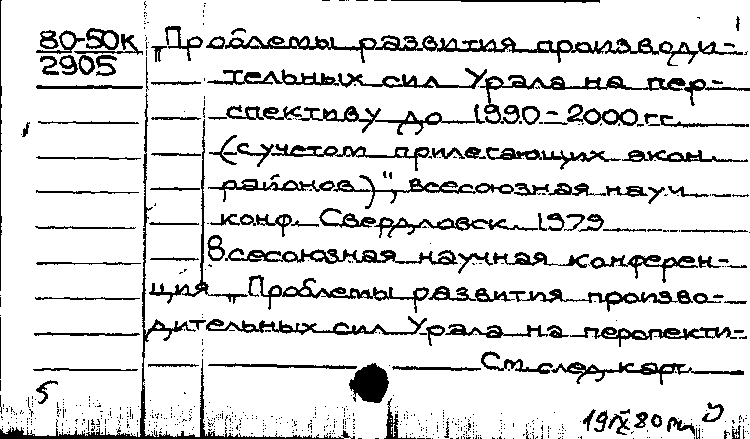 80-50к
2905
„Проблемы развития производи-
тельных сил Урала на пер-
спективу до 1990-2000 гг.
(с учетом прилегающих экон.
районов)", всесоюзная науч.
конф. Свердловск. 1979
Всесоюзная научная конферен-
ция „Проблемы развития произво-
дительных сил Урала на перспекти-
См. след. карт.
5
19 IX 80